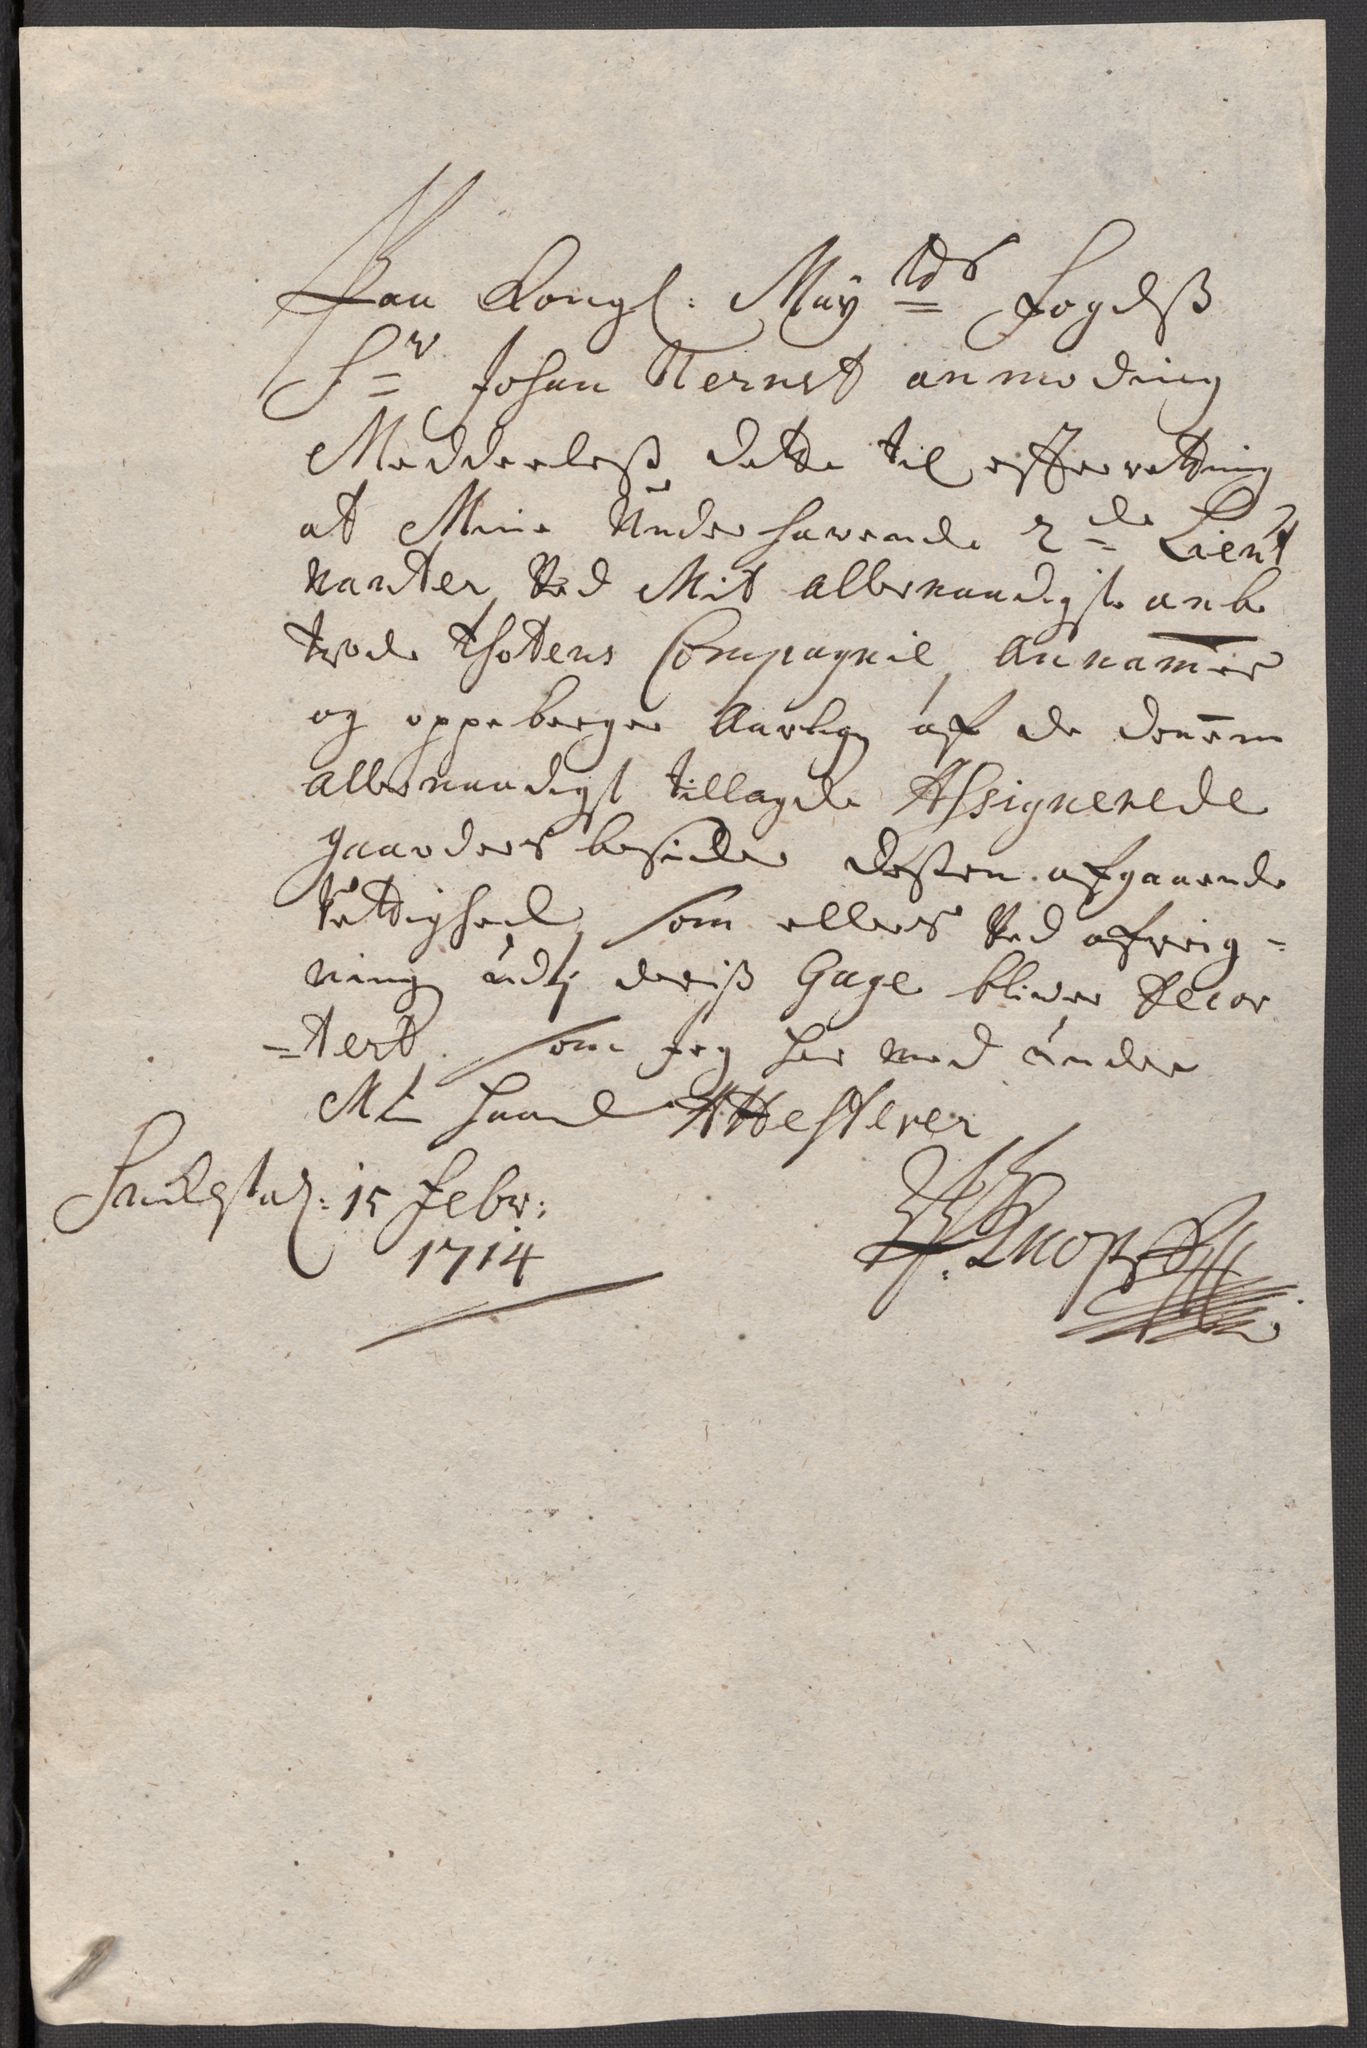 Paa Kongl: May tds Fogdß
Sr Johan Nernst anmoding
Meddeeleß dette til effterretning
at Mine Underhavende 2de Lieut
nanter ved Mit allernaadigst anbe
troede Thotens Compagnie, Annamer
og oppeberger Aarligen af de dennem
allernaadigst tillagde Assignerede
gaarders besidder desßen afgaaende
Rettighed, som ellers ved afreig=
ning udj deriß Gage bliver Decor
=tert. som jeg her med under
Min haand Attesterer
Sandestad: 15 Febr:
1714
Knopff